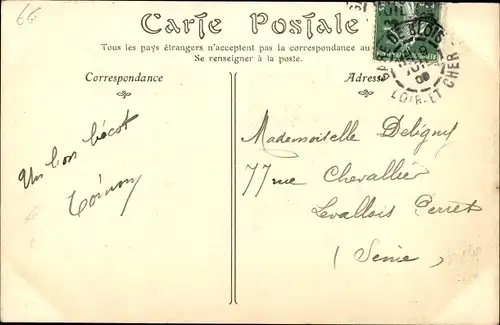 66
Carte Postale
Tous les pays étrangers n'acceptent pas la correspondance au
Se renseigner à la poste.
Correspondance
Adresse
GARE DE BLOIS
LOIR-ET-CHER
Un bon bécot
Mademoiselle Deligny
77 rue Chevallier
Levallois Perret
(Seine)